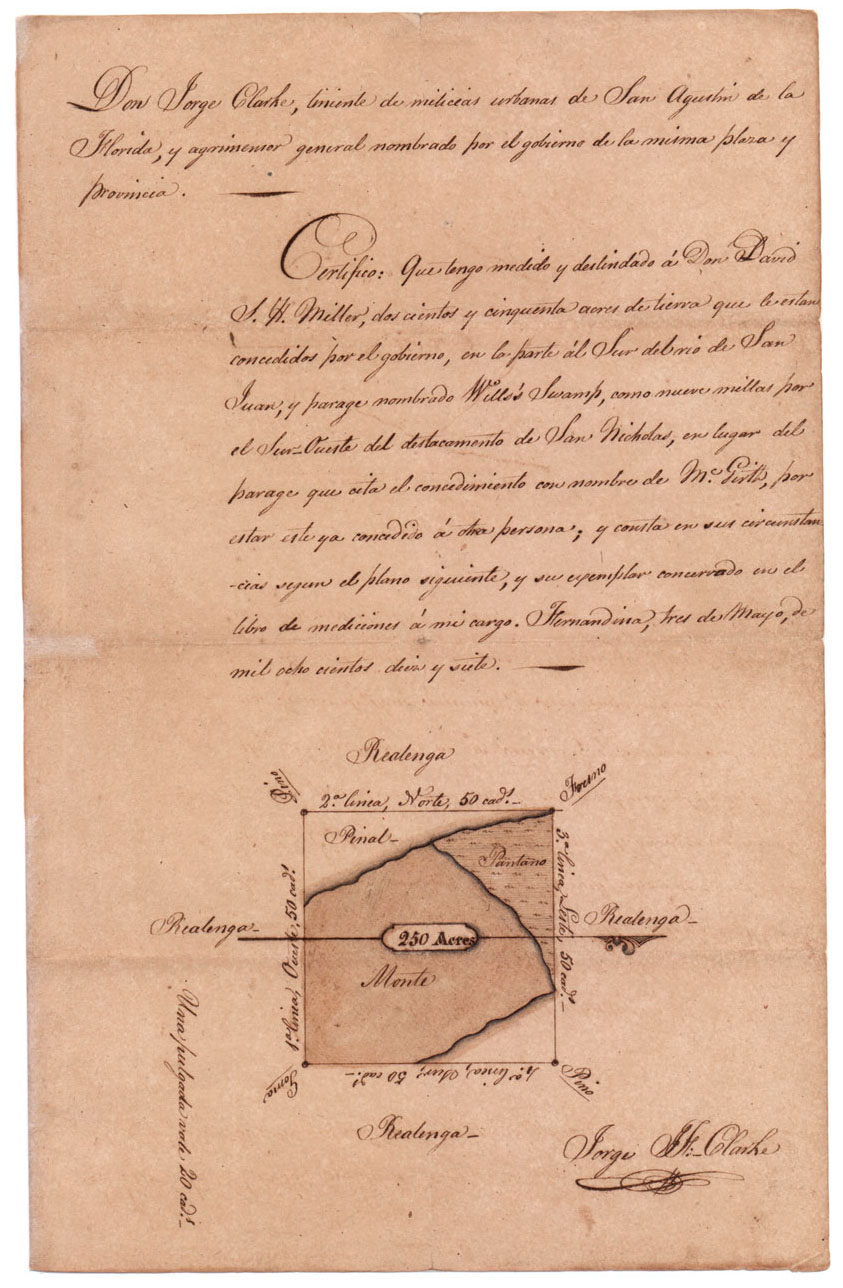 Don Jorge Clarke, tiniente de milicias urbanas de San Agustin de la
Florida, y agrimensor general nombrado por el gobierno de la misma plaza y
provincia.
Certifico: Que tengo medido y deslindado á Don David
S. H. Miller, dos cientos y cinquenta acres de tierra que le estan
concedidos por el gobierno, en la parte ál Sur del rio de San
Juan, y parage nombrado Wills's Swamp, como nueve millas por
el Sur-Oueste del destacamento de San Nicholas, en lugar del
parage que cita el concedimiento con nombre de Mc. Girth, por
estar este ya concedido á otra persona; y consta en sus circunstan
-cias segun el plano siguiente, y su exemplar concerrado en el
libro de mediciónes á mi cargo. Fernandina, tres de Mayo, de
mil ocho cientos diez y siete.
Realenga
Pino
Fresno
2.a linea, Norte, 50 cad.s
Pinal
Pantano
3.a linea, Leste, 50 cad.s
Realenga
250 Acres
Realenga
1.a linea, Oueste, 50 cad.s
Monte
Goma
4.a linea, Sur, 50 cad.s
Pino
Realenga
Una pulgada vale 20 cad.s
Jorge Clarke